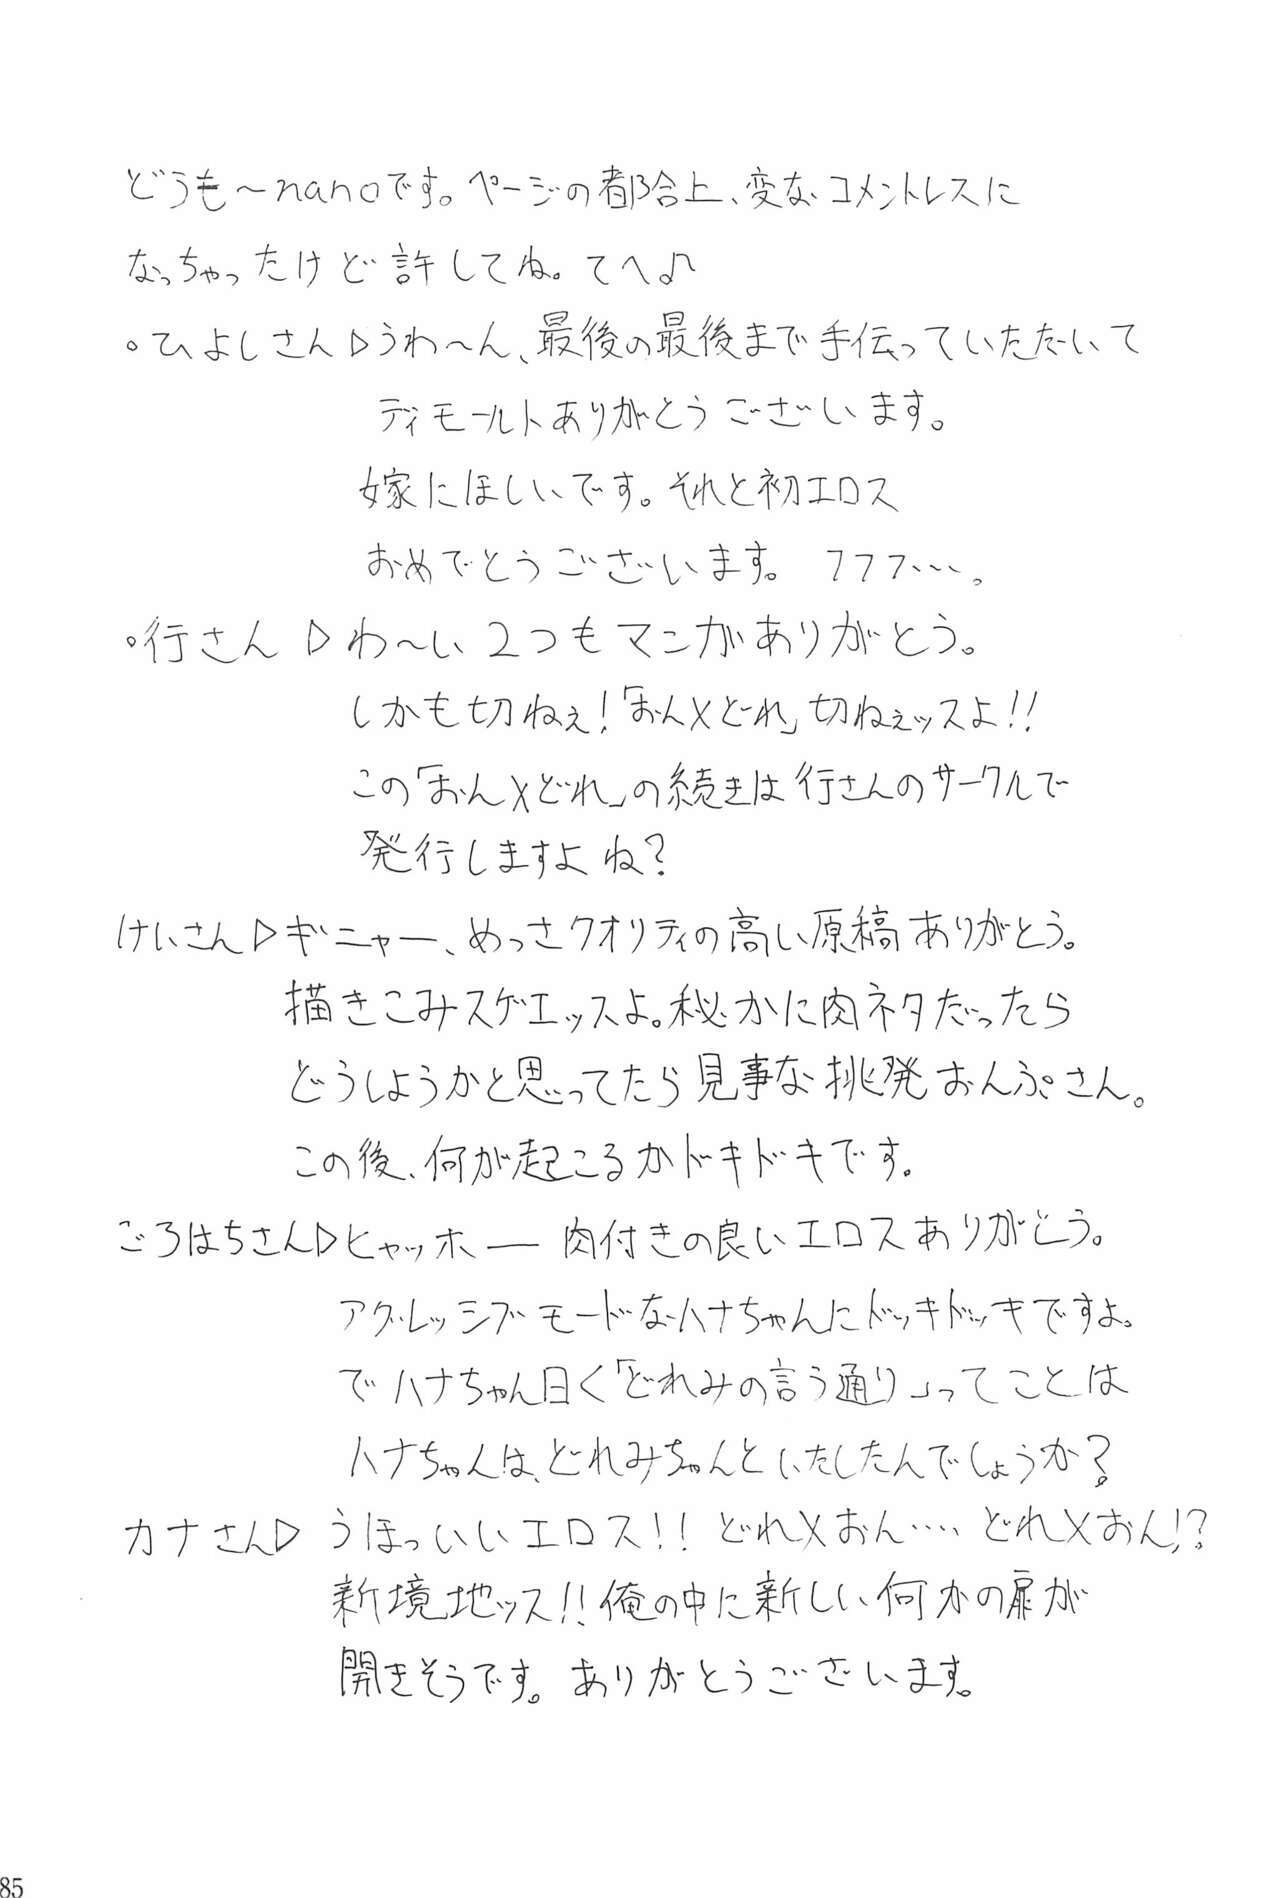 どうも～nanoです。ページの都合上、変なコメントレスに
なっちゃったけど許してね。てへ♪
。ひよしさん▷うわ～ん、最後の最後まで手伝っていただいて
ディモールトありがとうございます。
嫁にほしいです。それと初エロス
おめでとうございます。フフフ…。
。行さん▷わ～い2つもマンガありがとう。
しかも切ねぇ!「おん×どれ」切ねぇッスよ!!
この「おん×どれ」の続きは行さんのサークルで
発行しますよね?
けいさん▷ギニャー、めっさクオリティの高い原稿ありがとう。
描きこみスゲエッスよ。秘かに肉ネタだったら
どうしようかと思ってたら見事な挑発おんぷさん。
この後、何が起こるかドキドキです。
ごろはちさん▷ヒャッホー肉付きの良いエロスありがとう。
アグレッシブモードなハナちゃんにドッキドッキですよ。
でハナちゃん曰く「どれみの言う通り」ってことは
ハナちゃんは、どれみちゃんといたしたんでしょうか?
カナさん▷うほっいいエロス!!どれ×おん….どれ×おん!?
新境地ッス!!俺の中に新しい何かの扉が
開きそうです。ありがとうございます。
85